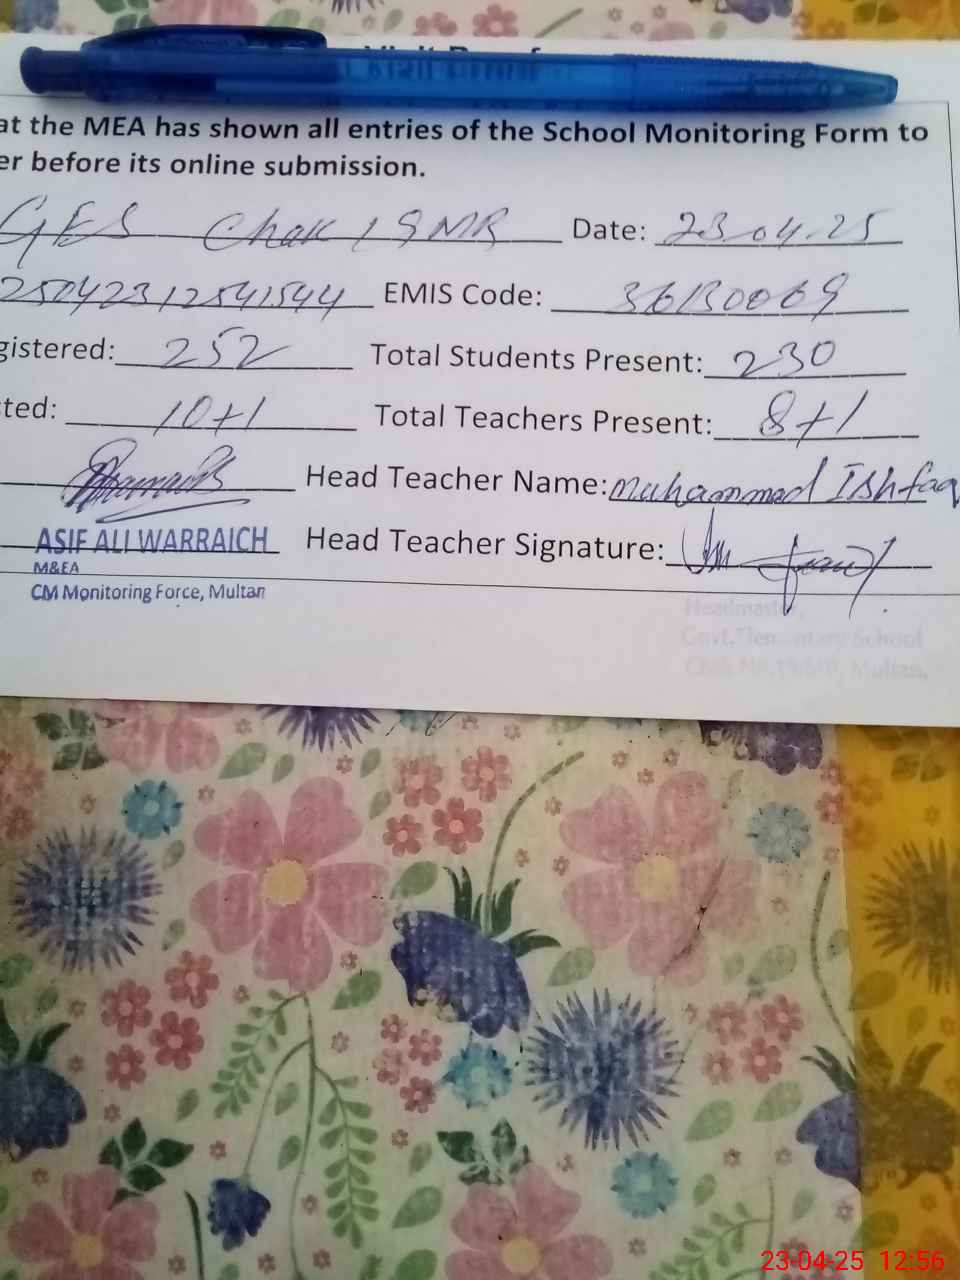 at the MEA has shown all entries of the School Monitoring Form to
er before its online submission.
GES Chak 19MR Date: 23-04-25
25042312541544 EMIS Code: 36130069
gistered: 252 Total Students Present: 230
ted: 10+1 Total Teachers Present: 8+1
Head Teacher Name: Muhammad Ishfaq
ASIF ALI WARRAICH Head Teacher Signature:
M&EA
CM Monitoring Force, Multan
Headmaster,
Govt. Elementary School
Multan,
23-04-25 12:56